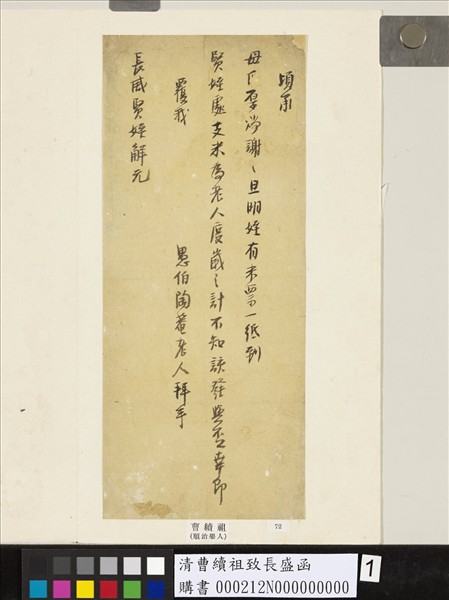 頃承
母下厚賞謝〻旦明姪有米票一紙到
賢姪處支米為老人度歲之計不知該發與否幸即
覆我
愚伯陶菴老人拜手
長盛賢姪解元
曹續祖
(順治舉人)
72
清曹續祖致長盛函
購書 000212N000000000
1